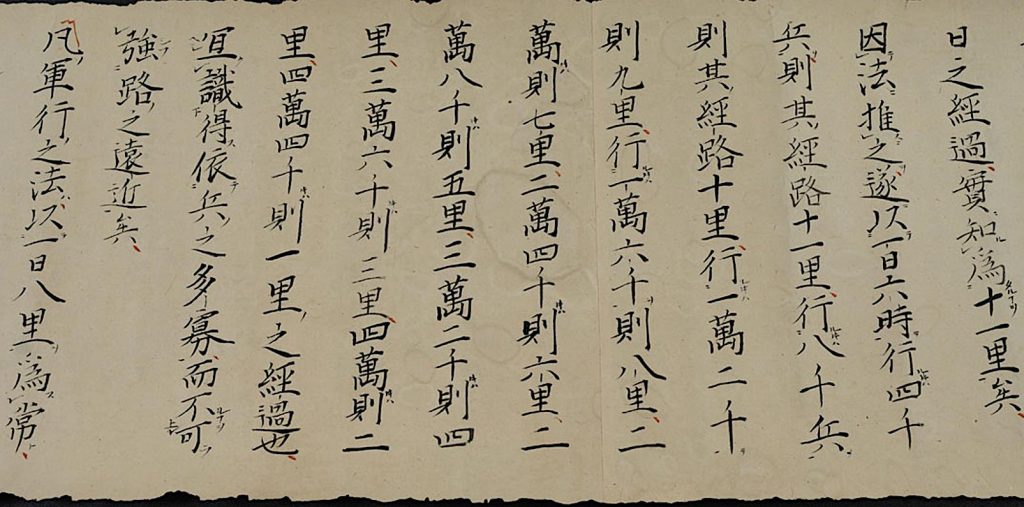 日之經過實知爲十一里矣
因法推之遂以一日六時行四千
兵則其經路十一里行八千兵
則其經路十里行一萬二千
則九里行一萬六千則八里二
萬則七里二萬四千則六里二
萬八千則五里三萬二千則四
里三萬六千則三里四萬則二
里四萬四千則一里之經過也
識得依兵之多寡而不可
強路之遠近矣
凡軍行之法以一日八里爲常